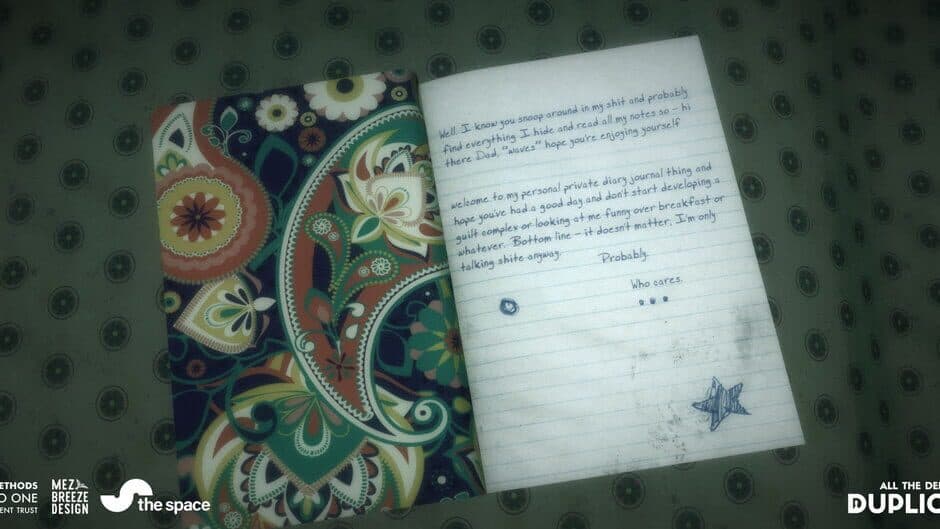 Well. I know you snoop around in my shit and probably
find everything I hide and read all my notes so – hi
there Dad, "waves" hope you're enjoying yourself
welcome to my personal private diary journal thing and
hope you've had a good day and don't start developing a
guilt complex or looking at me funny over breakfast or
whatever. Bottom line – it doesn't matter. I'm only
talking shite anyway. Probably.
Who cares.
...
ETHODS
O ONE
ENT TRUST
MEZ
BREEZE
DESIGN
the space
ALL THE DE
DUPLIC